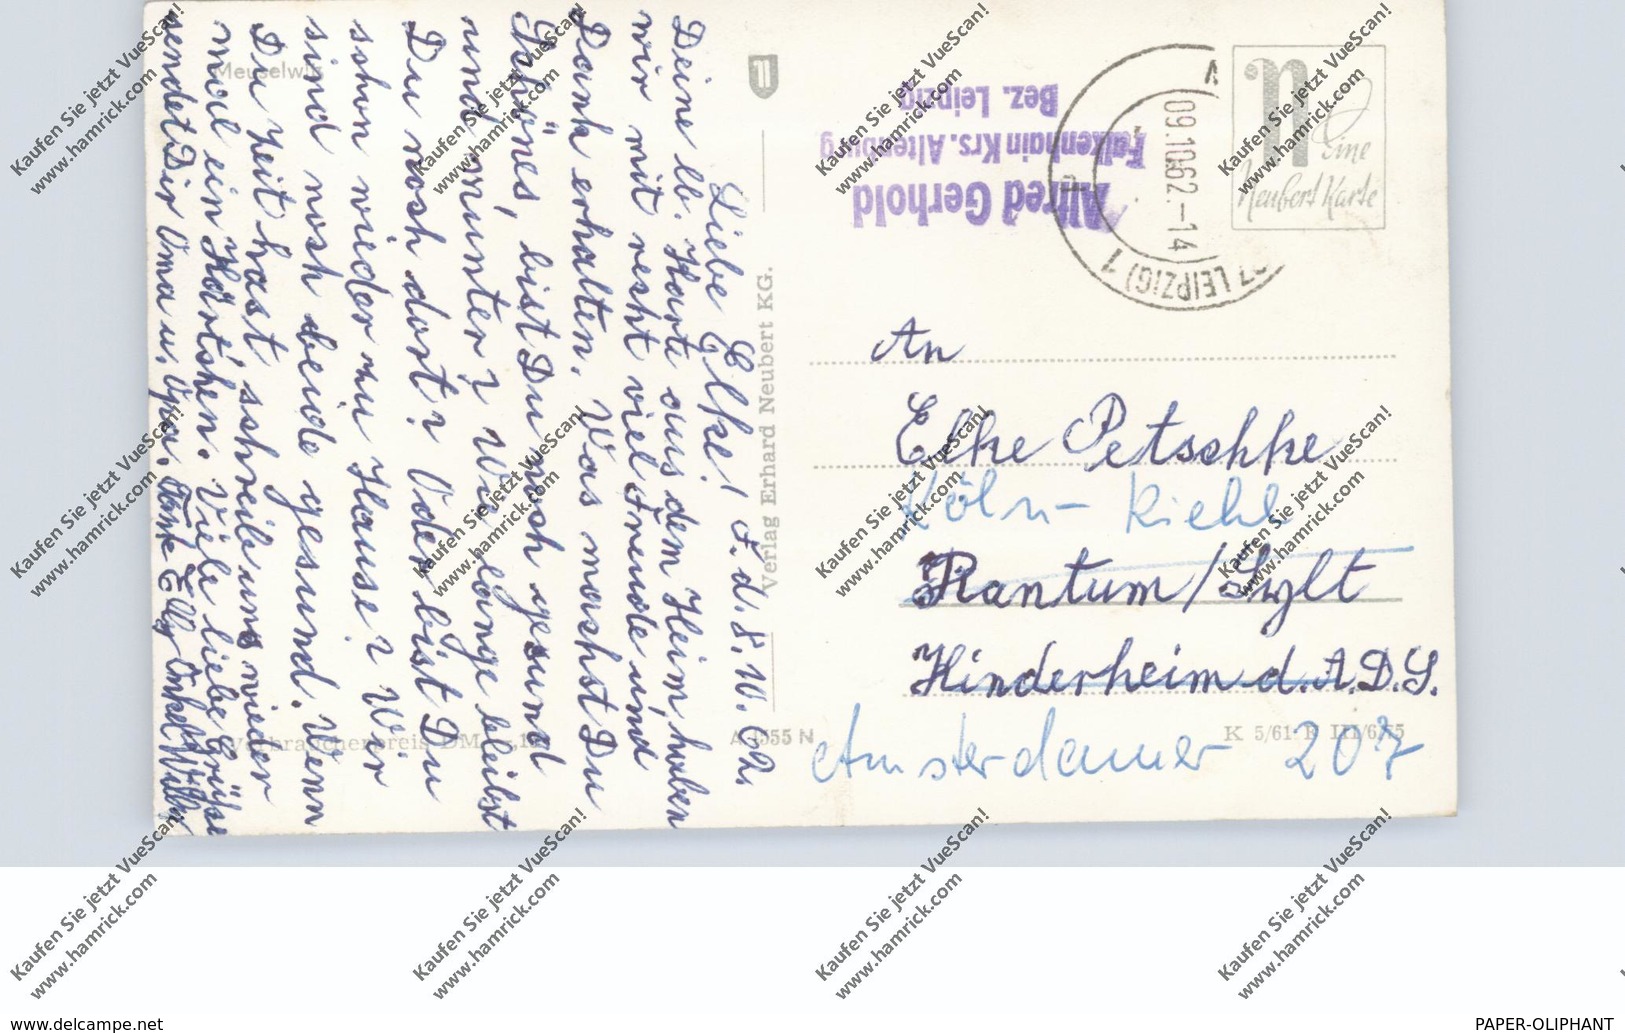 Meuselwitz
Liebe Elke! F. d. 8.10.62.
Deine lb. Karte aus dem Heim, haben
wir mit recht viel Freude und
Dank erhalten. Was machst Du
Schönes, bist Du noch gesund
und munter? Wie lange bleibst
Du noch dort? Oder bist Du
schon wieder zu Hause? Wir
sind noch beide gesund. Wenn
Du Zeit hast, schreib uns wieder
mal ein Kärtchen. Viele liebe Grüße
sendet Dir Oma u. Opa. Tante Elly Onkel Willy
Verbraucherpreis DM
Verlag Erhard Neubert KG.
A 1555 N
Alfred Gerhold
Falkenhain Krs. Altenburg
Bez. Leipzig
09.10.62.-14
LEIPZIG) 1
N
Eine
Neubert Karte
An
Elke Petschke
Köln-Riehl
Rantum/Sylt
Kinderheim d. A.D.S.
Amsterdamer 207
K 5/61 R III/6/75
Kaufen Sie jetzt VueScan!
www.hamrick.com
www.delcampe.net
PAPER-OLIPHANT